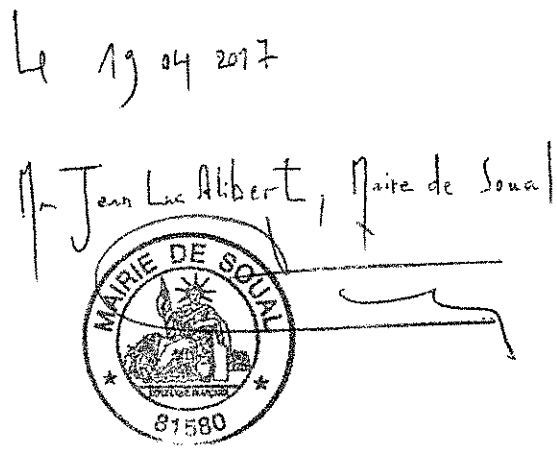 Le 19 04 2017
Mr Jean Luc Alibert, Maire de Soual
MAIRIE DE SOUAL
RÉPUBLIQUE FRANÇAISE
81580